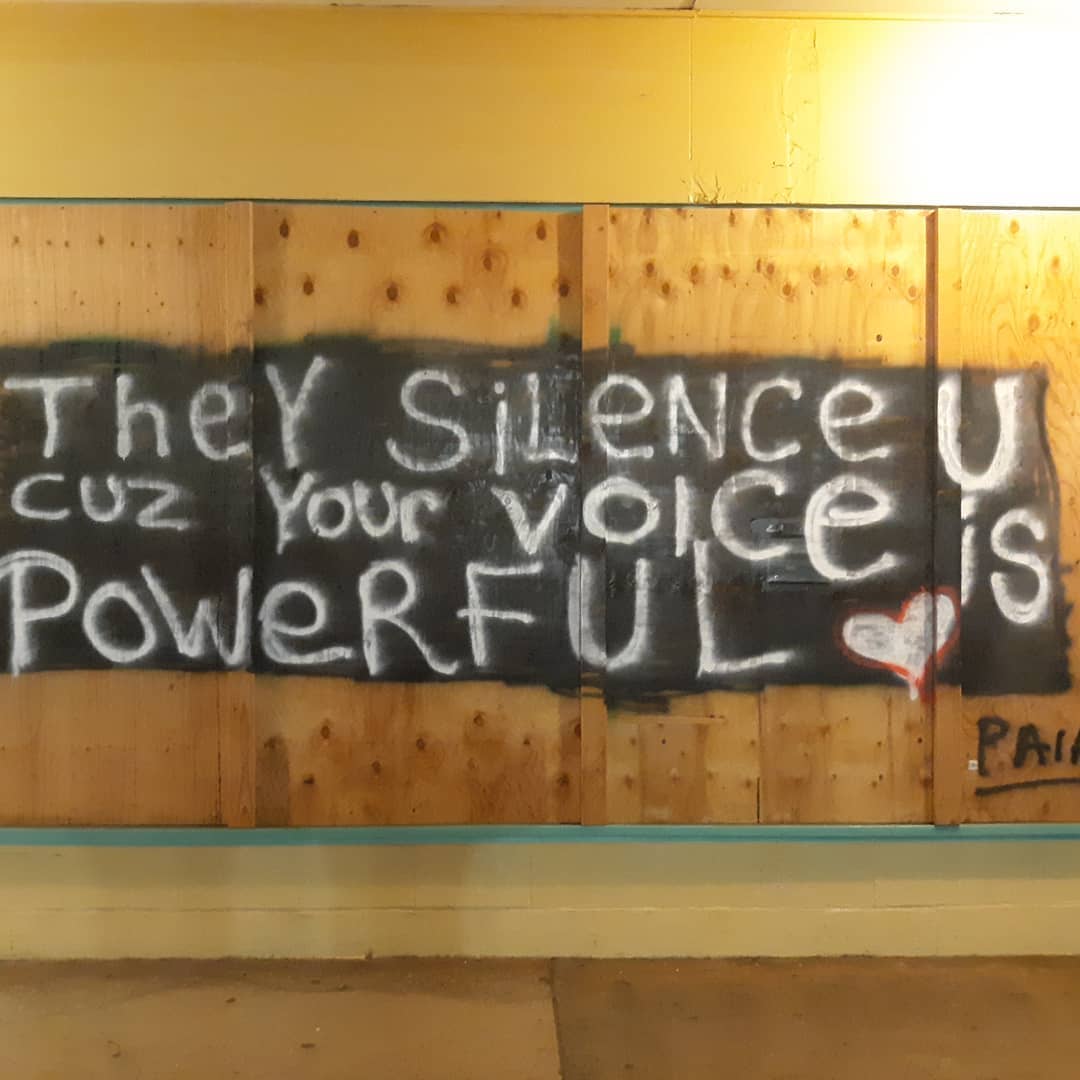 They SiLeNce U
cuz Your voice is
PoWeRFUL